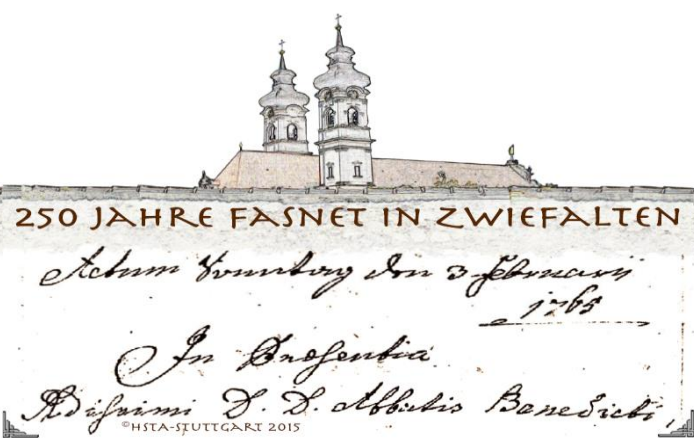 250 JAHRE FASNET IN ZWIEFALTEN
Actum Sonntag den 3 Februarii
1765
In Præsentia
D. D. Abbatis Benedicti,
©HSTA-STUTTGART 2015